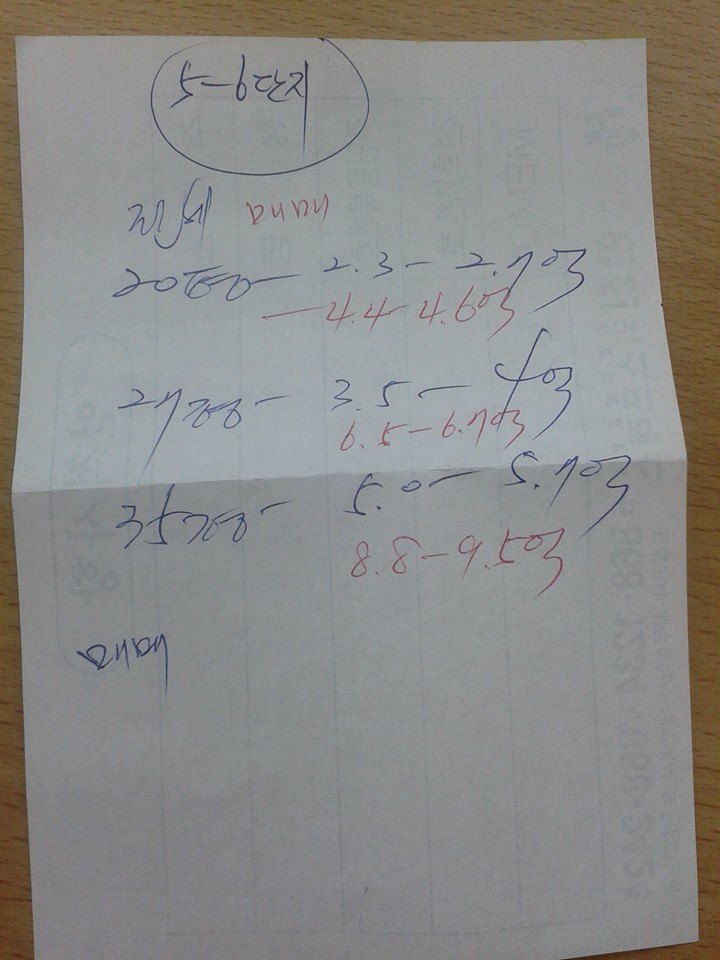 5-6단지
전세 매매
20평 - 2.3 - 2.7억
- 4.4 - 4.6억
27평 - 3.5 - 4억
6.5 - 6.7억
35평 - 5.0 - 5.7억
8.8 - 9.5억
매매